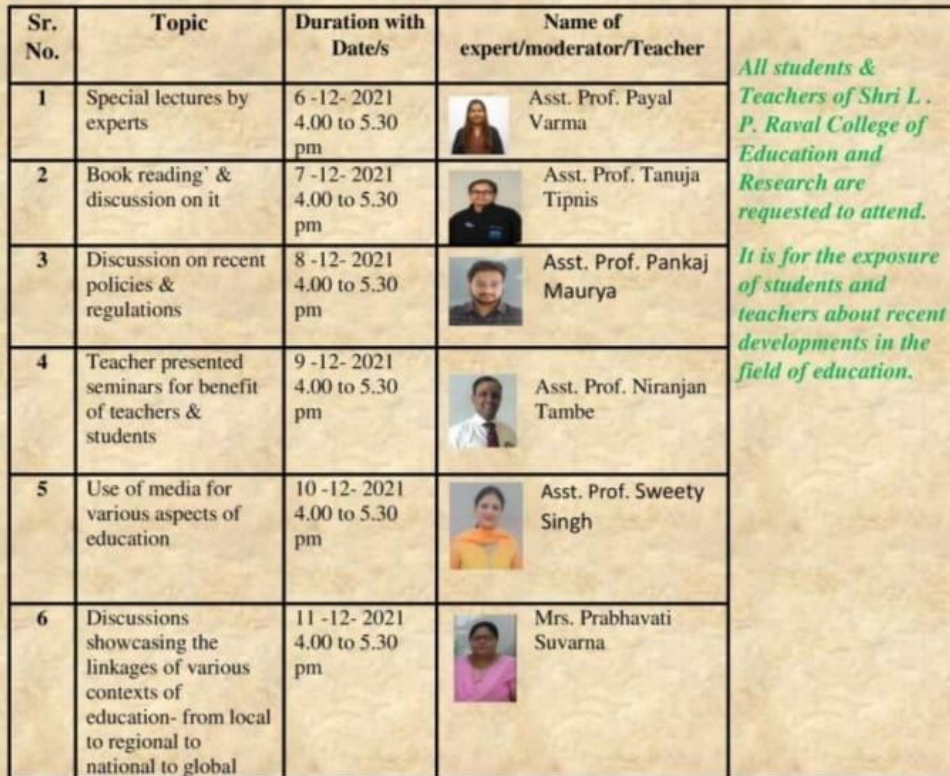 Sr. No.
Topic
Duration with Date/s
Name of expert/moderator/Teacher
1
Special lectures by
experts
6 -12- 2021
4.00 to 5.30
pm
Asst. Prof. Payal
Varma
2
Book reading` &
discussion on it
7 -12- 2021
4.00 to 5.30
pm
Asst. Prof. Tanuja
Tipnis
3
Discussion on recent
policies &
regulations
8 -12- 2021
4.00 to 5.30
pm
Asst. Prof. Pankaj
Maurya
4
Teacher presented
seminars for benefit
of teachers &
students
9 -12- 2021
4.00 to 5.30
pm
Asst. Prof. Niranjan
Tambe
5
Use of media for
various aspects of
education
10 -12- 2021
4.00 to 5.30
pm
Asst. Prof. Sweety
Singh
6
Discussions
showcasing the
linkages of various
contexts of
education- from local
to regional to
national to global
11 -12- 2021
4.00 to 5.30
pm
Mrs. Prabhavati
Suvarna
All students &
Teachers of Shri L .
P. Raval College of
Education and
Research are
requested to attend.
It is for the exposure
of students and
teachers about recent
developments in the
field of education.